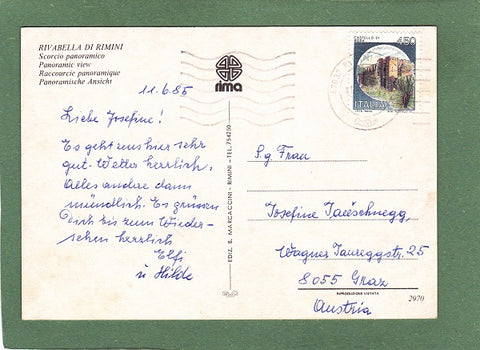 RIVABELLA DI RIMINI
Scorcio panoramico
Panoramic view
Raccourcie panoramique
Panoramische Ansicht
11.6.85
Liebe Josefine!
Es geht uns hier sehr
gut. Wetter herrlich,
alles andere dann
mündlich. Es grüssen
Dich bis zum Wieder-
sehen herzlich
Elfi
u Hilde
rima
EDIZ. B. MANCACCINI - RIMINI - TEL. 754250
CASTELLO DI
450
ITALIA
S.g Frau
Josefine
Wagner Jaureggstr. 25
8055 Graz
Austria
RIPRODUZIONE VIETATA
2970